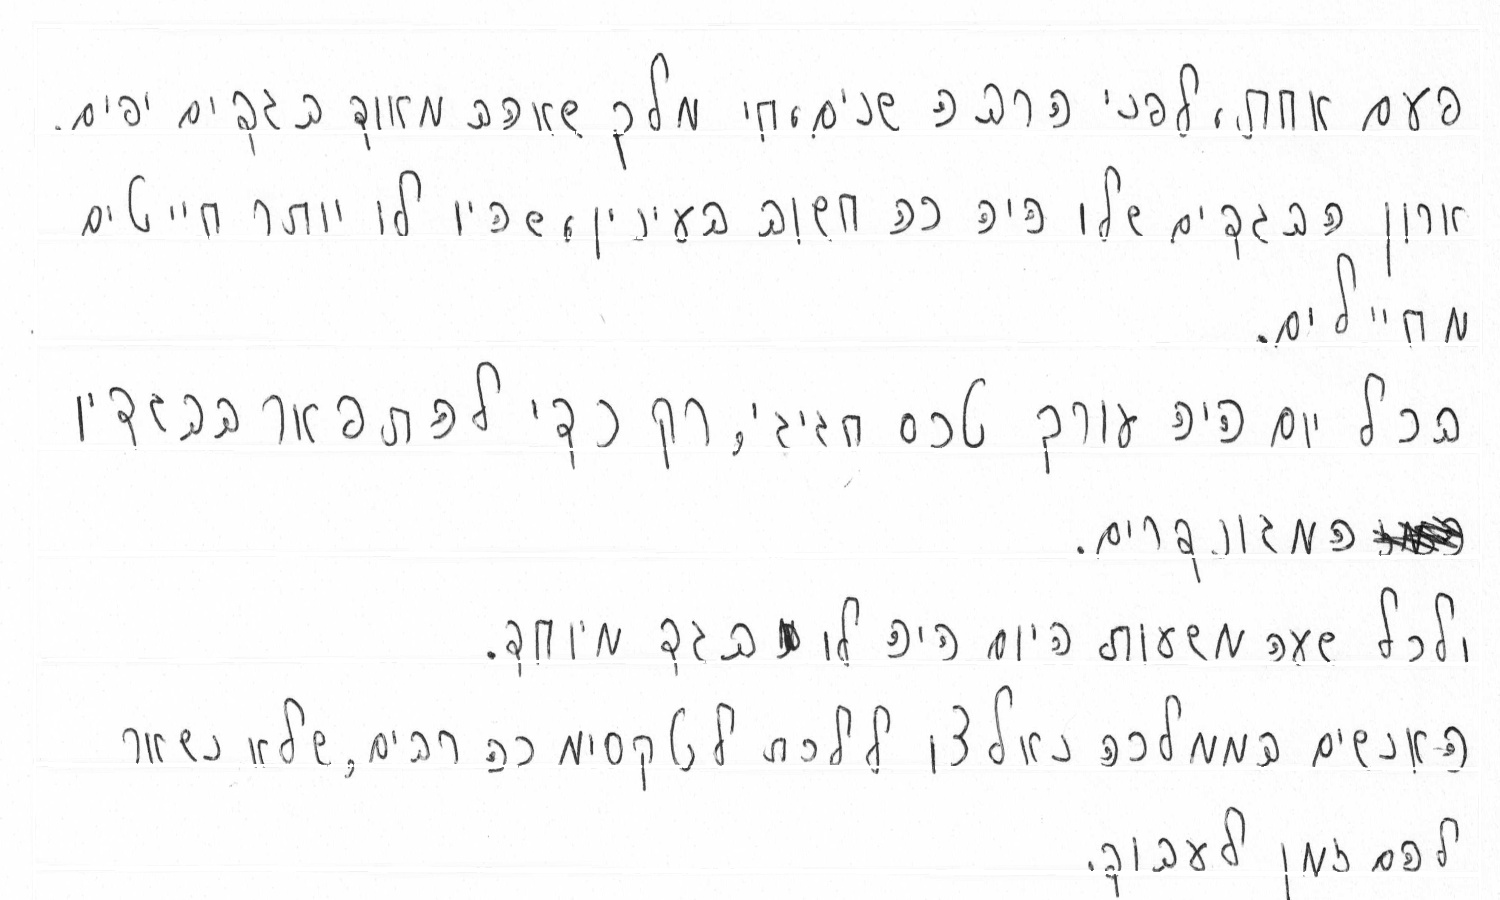 פעם אחת, לפני הרבה שנים, חי מלך שאהב מאוד בגדים יפים.
ארון הבגדים שלו היה כה חשוב בעינין, שהיו לו יותר חייטים
מחיילים.
בכל יום היה עורך טכס חגיגי, רק כדי להתפאר בבגדיו
המגונדרים.
ולכל שעה משעות היום היה לו בגד מיוחד.
האנשים בממלכה נאלצו ללכת לטקסים כה רבים, שלא נשאר
להם זמן לעבוד.